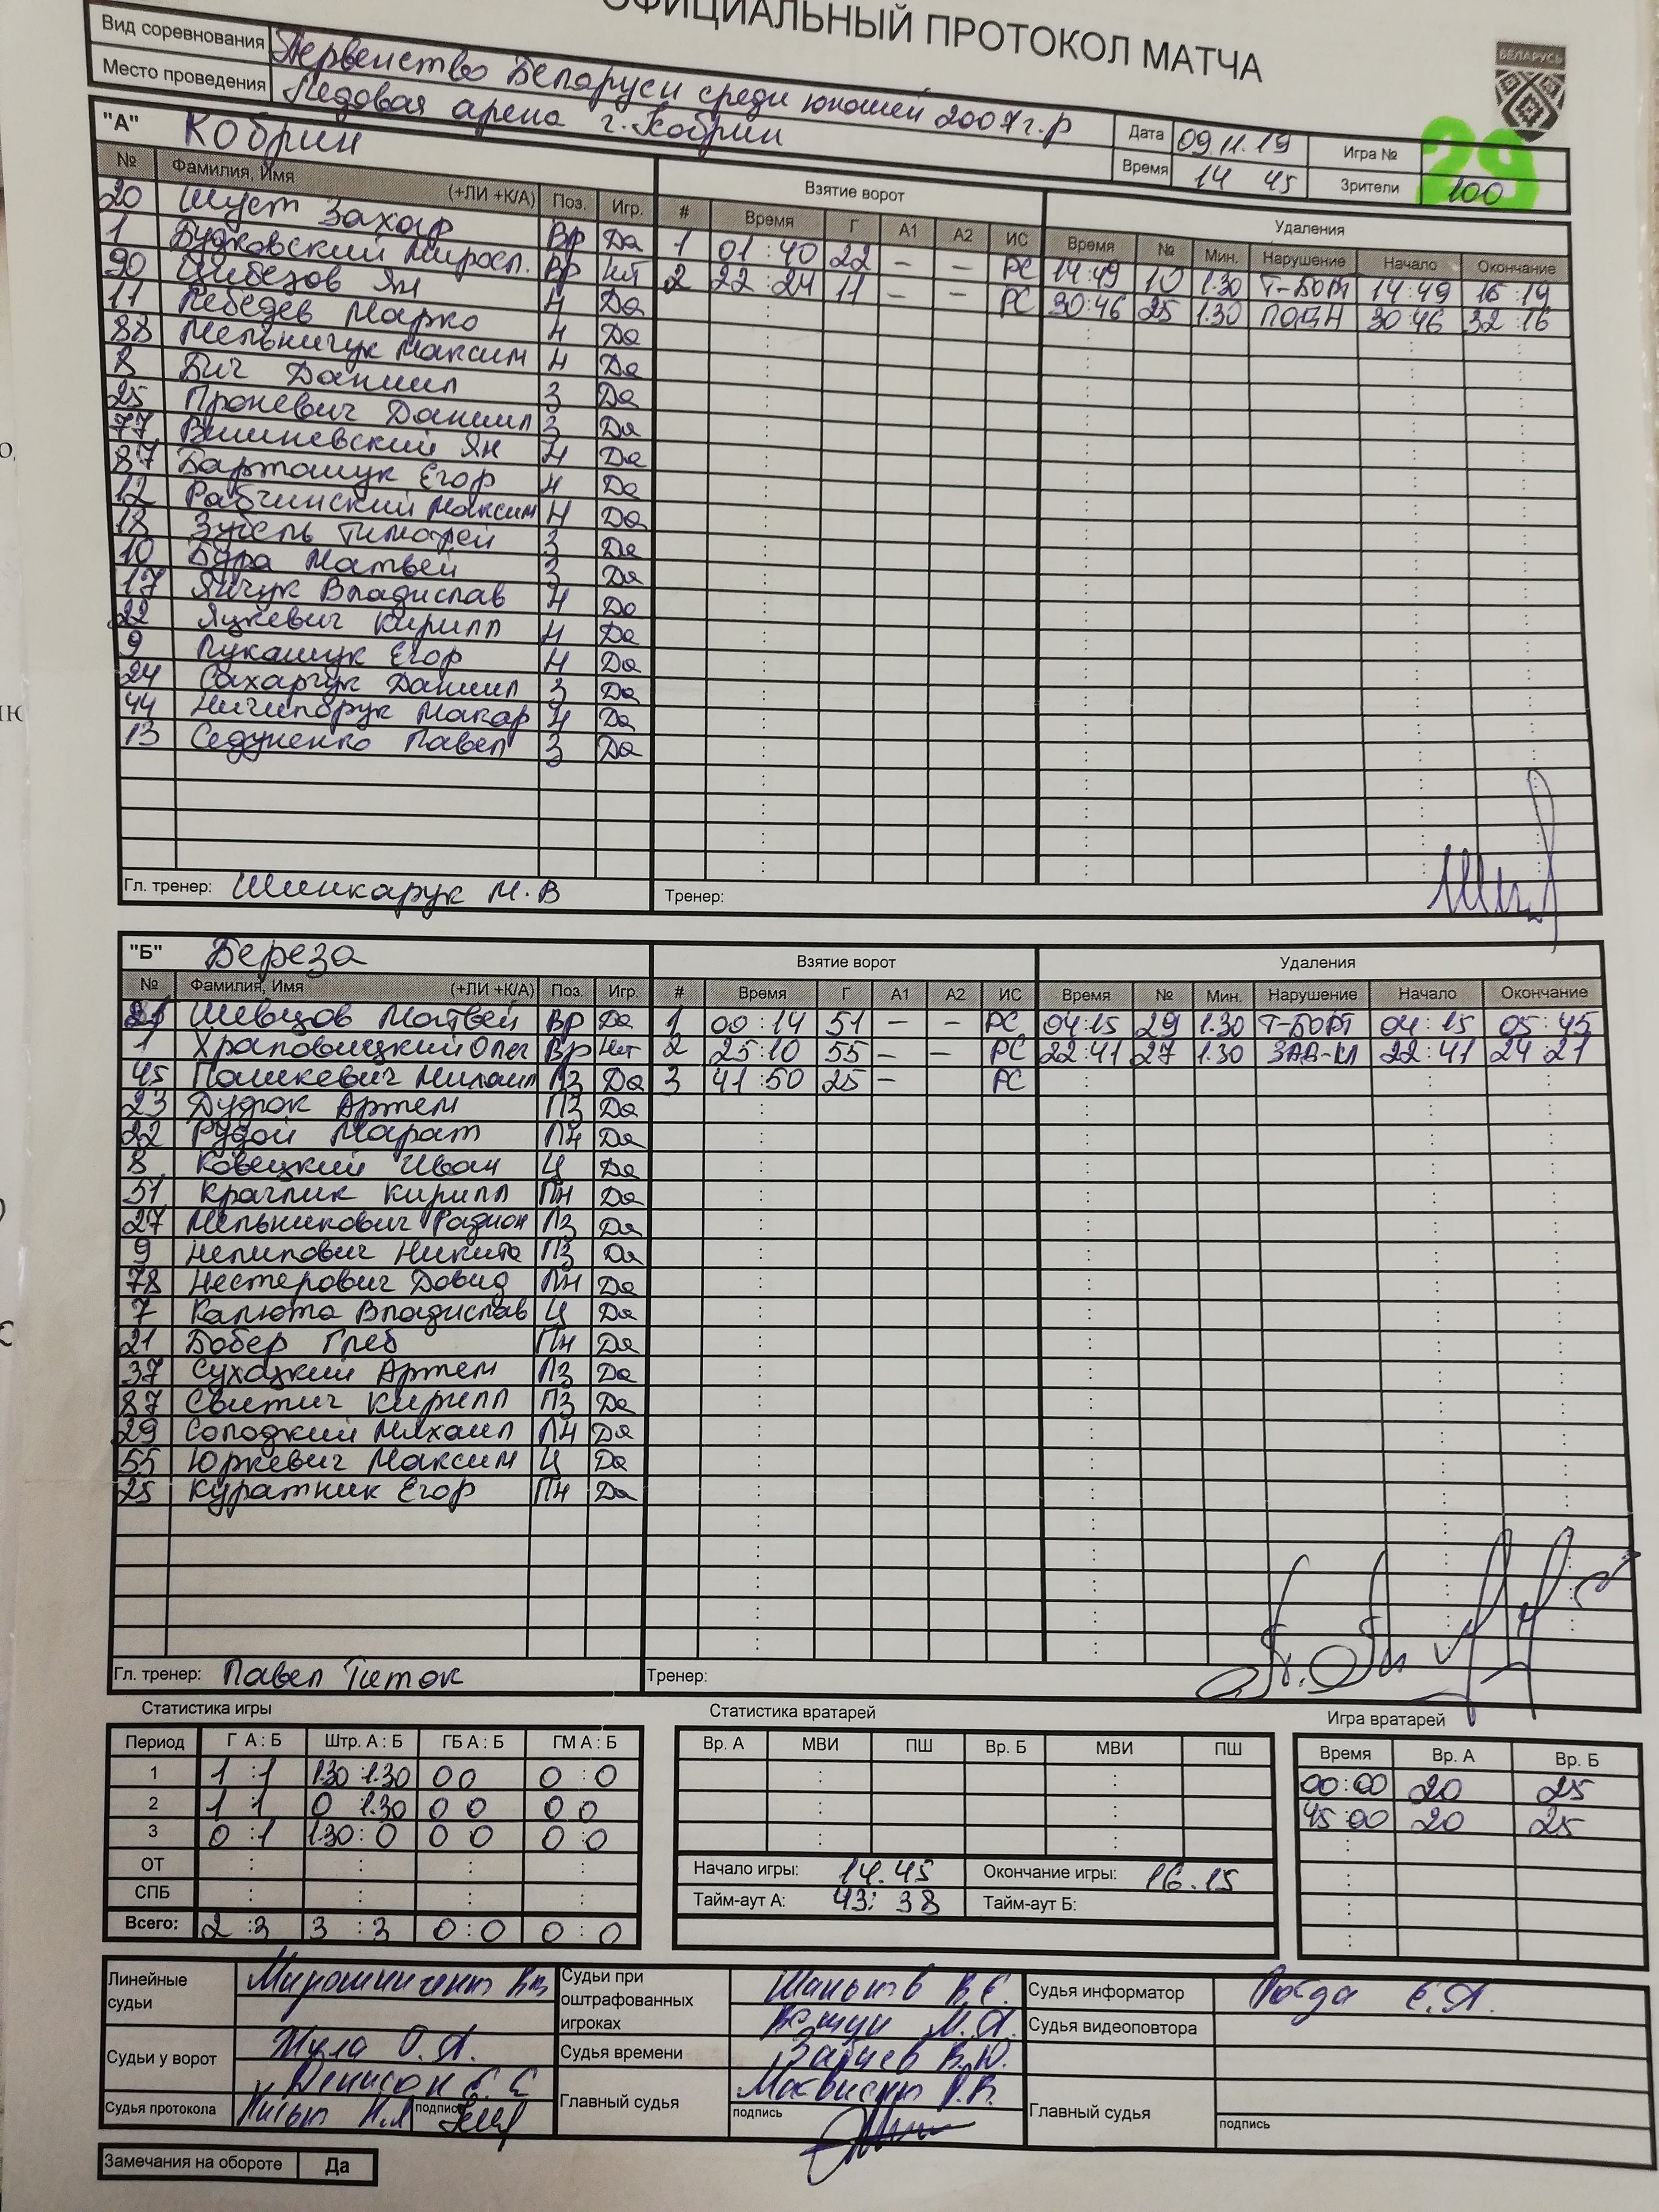 ОФИЦИАЛЬНЫЙ ПРОТОКОЛ МАТЧА
БЕЛАРУСЬ
Вид соревнования Первенство Беларуси среди юношей 2007г.р
Место проведения Ледовая арена г. Кобрин
Дата 09.11.19 Игра № 29
Время 14 45 Зрители 100
"А" Кобрин Взятие ворот Удаления
№ Фамилия, Имя (+ЛИ +К/А) Поз. Игр. # Время Г А1 А2 ИС Время № Мин. Нарушение Начало Окончание
20 Шуст Захар Вр Да 1 01:40 22 – – РС 14:49 10 1.30 Т-БОРТ 14:49 16:19
1 Будковский Миросл. Вр Нт 2 22:24 11 – – РС 30:46 25 1.30 ПОДН 30:46 32:16
90 Цибезов Ян Н Да
11 Лебедев Марко Н Да
88 Мельничук Максим Н Да
8 Бич Даниил З Да
25 Проневич Даниил З Да
77 Вишневский Ян Н Да
87 Бартошук Егор Н Да
12 Рабчинский Максим Н Да
18 Зубель Тимофей З Да
10 Бура Матвей З Да
17 Янчук Владислав Н Да
22 Яцкевич Кирилл Н Да
9 Лукашук Егор Н Да
24 Сахарчук Даниил З Да
44 Ничипорук Макар Н Да
13 Седуненко Павел З Да
Гл. тренер: Шинкарук М.В Тренер:
"Б" Береза Взятие ворот Удаления
№ Фамилия, Имя (+ЛИ +К/А) Поз. Игр. # Время Г А1 А2 ИС Время № Мин. Нарушение Начало Окончание
Шевцов Матвей ВР Да 1 00:14 51 – – РС 04:15 29 1.30 Т-БОРТ 04:15 05:45
1 Храповицкий Олег Вр Нт 2 25:10 55 – – РС 22:41 27 1.30 ЗАД-КЛ 22:41 24:21
45 Пашкевич Михаил ПЗ Да 3 41:50 25 – РС
23 Дудюк Артем ПЗ Да
22 Рудой Марат ПН Да
8 Ковецкий Иван Ц Да
51 Краглик Кирилл ПН Да
27 Мельникович Радион ПЗ Да
9 Непипович Никита ПЗ Да
78 Нестерович Давид ПН Да
7 Калюта Владислав Ц Да
21 Бобер Глеб ПН Да
37 Сухацкий Артем ПЗ Да
87 Свитич Кирилл ПЗ Да
29 Солодкий Михаил ПН Да
55 Юркевич Максим Ц Да
25 Куратник Егор ПН Да
Гл. тренер: Павел Титок Тренер:
Статистика игры Статистика вратарей Игра вратарей
Период Г А : Б Штр. А : Б ГБ А : Б ГМ А : Б Вр. А МВИ ПШ Вр. Б МВИ ПШ Время Вр. А Вр. Б
1 1 : 1 1.30 : 1.30 0 0 0 : 0 00:00 20 25
2 1 1 0 1.30 0 0 0 0 45 00 20 25
3 0 : 1 1.30 : 0 0 0 0 : 0
ОТ
СПБ
Всего: 2 : 3 3 : 3 0 : 0 0 : 0
Начало игры: 14.45 Окончание игры: 16.15
Тайм-аут А: 43: 38 Тайм-аут Б:
Линейные судьи
Судьи при оштрафованных игроках
Судья информатор
Судья видеоповтора
Судьи у ворот Жула О.А.
Судья времени
Судья протокола подпись
Главный судья
подпись
Главный судья
подпись
Замечания на обороте Да